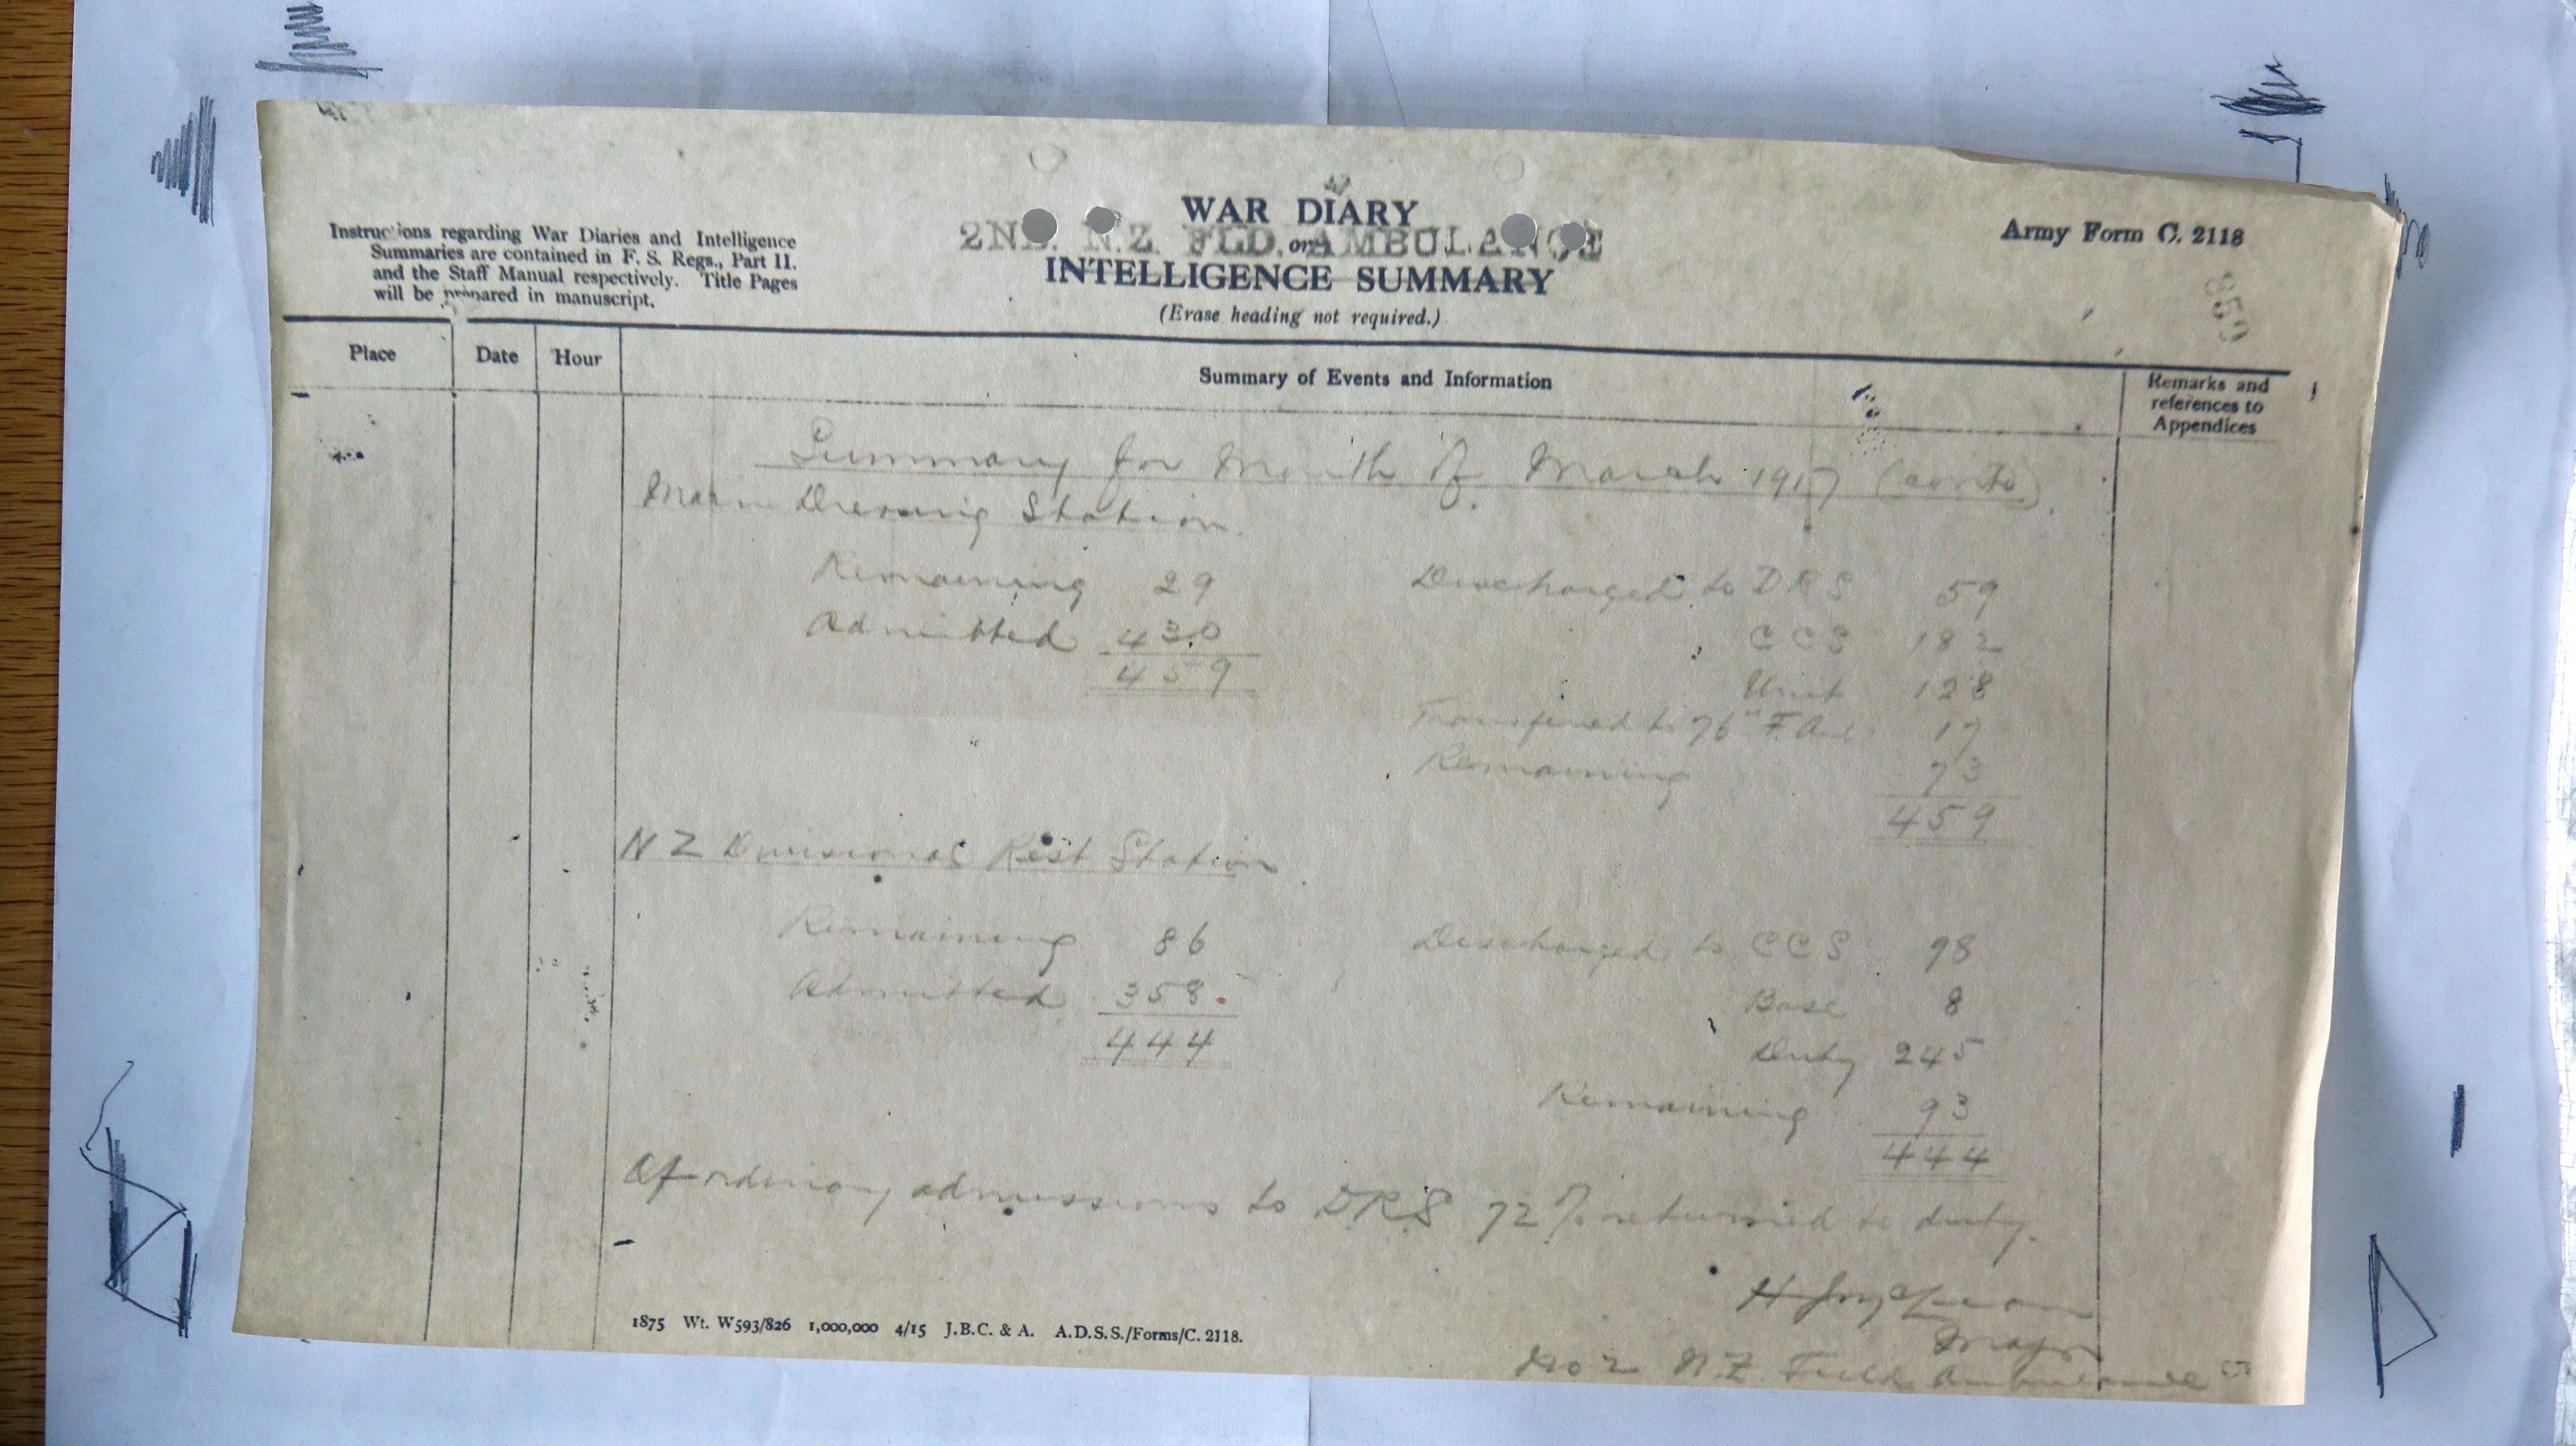 Instructions regarding War Diaries and Intelligence
Summaries are contained in F. S. Regs., Part II.
and the Staff Manual respectively. Title Pages
will be prepared in manuscript.
WAR DIARY
2ND. N.Z. FLD. AMBULANCE
or
INTELLIGENCE SUMMARY
(Erase heading not required.)
Army Form C. 2118
Place
Date
Hour
Summary of Events and Information
Remarks and
references to
Appendices
Summary for Month of March 1917 (contd).
Main Dressing Station.
Remaining 29 Discharged to DRS 59
Admitted 430 CCS 182
459 Unit 128
Transferred to 76th F. Amb 17
Remaining 73
459
N Z Divisional Rest Station
Remaining 86 Discharged to CCS 98
Admitted 358. Base 8
444 Duty 245
Remaining 93
444
Of ordinary admissions to DRS 72% returned to duty.
Major
No 2 N.Z. Field Ambulance
1875 Wt. W593/826 1,000,000 4/15 J.B.C. & A. A.D.S.S./Forms/C. 2118.